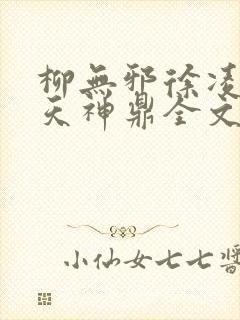 柳無邪徐凌
天神鼎全文
小仙女七七醬